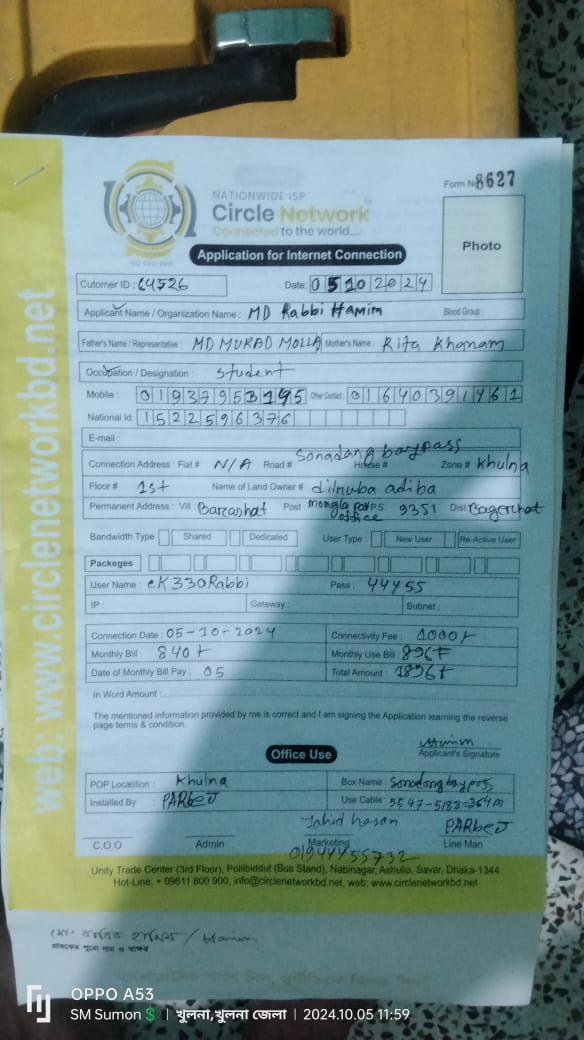 Form No 8627
NATIONWIDE ISP
Circle Network
Connected to the world....
Application for Internet Connection
Photo
Cutomer ID : 64526 Date: 05102024
Applicant Name / Organization Name : MD Rabbi Hamim Blood Group :
Father's Name / Representative : MD MURAD MOLLA Mother's Name : Rita Khanam
Occupation / Designation : Student
Mobile : 01937953195 Other Contact : 01640391461
National Id: 1522596376
E-mail :
Connection Address : Flat # N/A Road # Sonadang baypass House # Zone # Khulna
Floor # 1st Name of Land Owner # dilruba adiba
Permanent Address : Vill : Post : mongla port office P.S. 9351 Dist: Bagerhat
Bandwidth Type Shared Dedicated User Type : New User Re-Active User
Packeges
User Name : CK330Rabbi Pass : 44455
IP : Gateway : Subnet :
Connection Date : 05-10-2024 Connectivity Fee : 1000/-
Monthly Bill : 840/- Monthly Use Bill : 896/-
Date of Monthly Bill Pay : 05 Total Amount : 1896/-
In Word Amount :
The mentioned information provided by me is correct and I am signing the Application learning the reverse
page terms & condition.
Hamim
Applicant's Signature
Office Use
POP Locatition : Khulna Box Name : Sonadang baypass
Installed By : PARbEJ Use Cable : 5547-5183=364m
Jahid hasan PARbEJ
C.O.O Admin Marketing Line Man
01944455732
Unity Trade Center (3rd Floor), Pollibiddut (Bus Stand), Nabinagar, Ashulia, Savar, Dhaka-1344
Hot-Line: + 09611 800 900, info@circlenetworkbd.net, web: www.circlenetworkbd.net
web: www.circlenetworkbd.net
মোঃ হামিম / Hamim
গ্রাহকের পুরো নাম ও স্বাক্ষর
OPPO A53
SM Sumon💲 | খুলনা,খুলনা জেলা | 2024.10.05 11:59